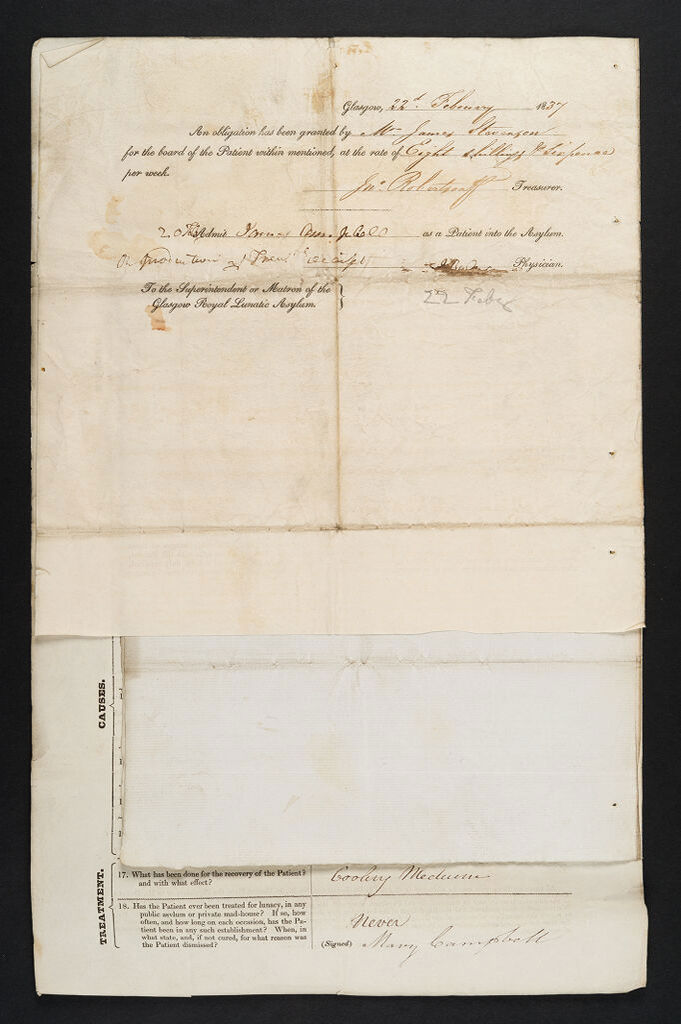 Glasgow, 22d. Febuary 1837
An obligation has been granted by Mr. James Stevenson
for the board of the Patient within mentioned, at the rate of Eight shillings & sixpence
per week.
Jno. Robertson Treasurer.
Admit James Campbell as a Patient into the Asylum.
On production of Treasr. receipt Physician.
To the Superintendent or Matron of the
Glasgow Royal Lunatic Asylum. }
22 Feby
CAUSES.
TREATMENT.
17. What has been done for the recovery of the Patient? Cooling Medicine
and with what effect?
18. Has the Patient ever been treated for lunacy, in any
public asylum or private mad-house? If so, how Never
often, and how long on each occasion, has the Pa-
tient been in any such establishment? When, in
what state, and, if not cured, for what reason was (Signed) Mary Campbell
the Patient dismissed?